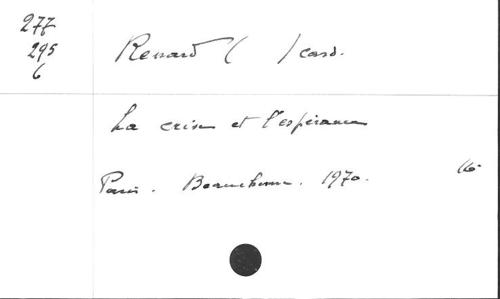 277
295
6
Renard ( ) card.
La crise et l'espérance
Paris. Beauchesne. 1970. 16°